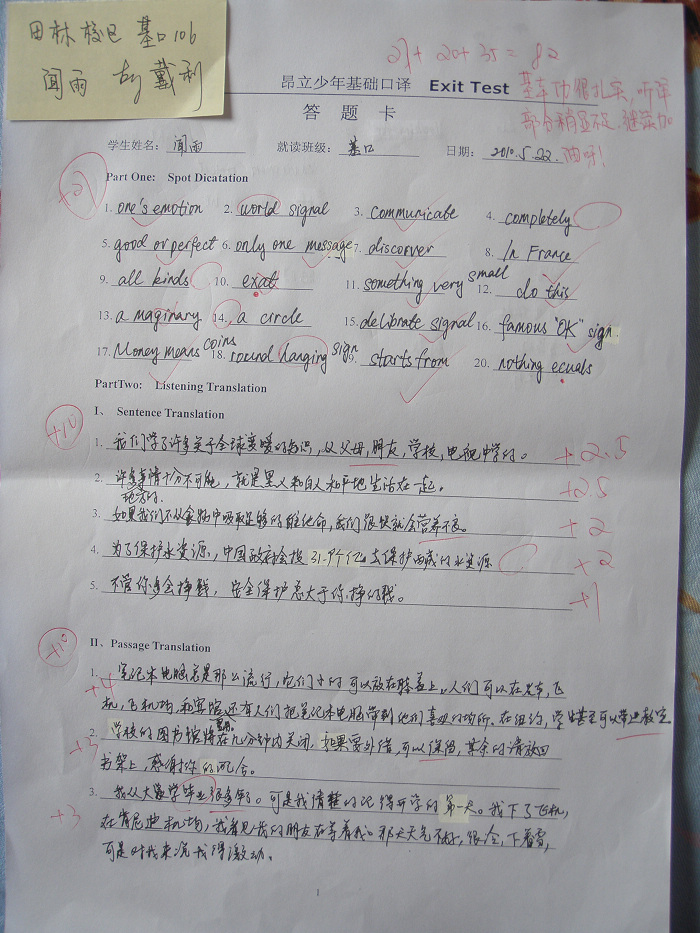 田林校区 基口106
闻雨 戴利
21+20+35=82
昂立少年基础口译 Exit Test
基本功很扎实,听译
答 题 卡
部分稍显不足,继续加
学生姓名: 闻雨 就读班级: 基口 日期: 2010.5.22.
油呀!
+21
Part One: Spot Dicatation
1. one's emotion 2. world signal 3. communicate 4. completely
5. good or perfect 6. only one message 7. discorver 8. In France
9. all kinds 10. exat 11. something very small 12. do this
13. a maginary 14. a circle 15. deliberate signal 16. famous "OK" sign
17. Money means coins 18. round hanging sign 19. starts from 20. nothing ecuals
PartTwo: Listening Translation
+10
I、 Sentence Translation
1. 我们学了许多关于全球变暖的知识,从父母,朋友,学校,电视中学的。 +2.5
2. 许多事情十分不可能,就是黑人和白人和平地生活在一起。 +2.5
地方的
3. 如果我们不从食物中吸取足够的维他命,我们很快就会营养不良。 +2
4. 为了保护水资源,中国政府会投31.个亿去保护西咸的水资源 +2
5. 不管你多会挣钱,安全保护总大于你挣的钱。 +1
+10
II、Passage Translation
1. 笔记本电脑总是那么流行,它们小的可以放在膝盖上,人们可以在火车,飞
+4
机,飞机场,和宾馆还有人们把笔记本电脑带到他们喜欢的场所。在纽约,学生甚至可以带进教室
2. 学校的图书馆将在几分钟内关闭,如果要外借,可以保留,其余的请放回
+3
书架上,感谢你的配合。
3. 我从大学毕业很多年了。可是我清楚的记得开学的第一天。我下了飞机,
+3
在肯尼迪机场,我看见我的朋友在等着我。那天天气不好,很冷,下着雪,
可是对我来说我得激动。
1